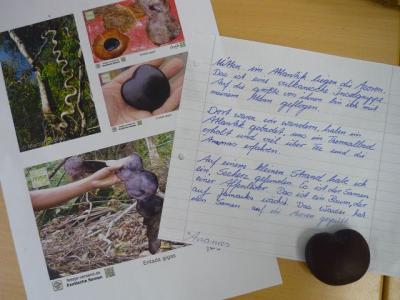 Mitten im Atlantik liegen die Azoren.
Das ist eine vulkanische Inselgruppe.
Auf die größte von ihnen bin ich mit
meinen Eltern geflogen.
Dort waren wir wandern, haben im
Atlantik gebadet, uns im Thermalbad
erholt und viel über Tee und die
Ananas erfahren.
Auf einem kleinen Strand habe ich
ein Seeherz gefunden. Es ist der Samen
einer Affenleiter. Das ist ein Baum, der
auf Jamaika wächst. Das Wasser hat
den Samen auf die Azoren gespült.
*Ananas
Entada gigas
Exotische Samen